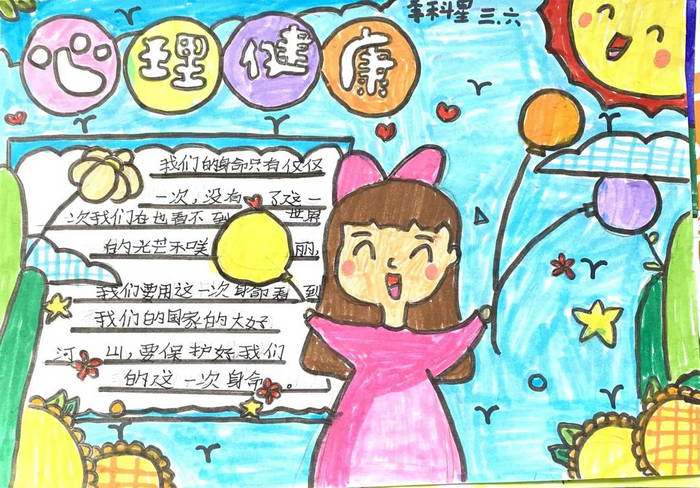 心理健康
李科星 三.六
我们的身命只有仅仅
一次，没有了这一
次我们在也看不到世界
的光芒禾噗丽，
我们要用这一次身命看到
我们的国家的大好
河山，要保护好我们
的这一次身命。